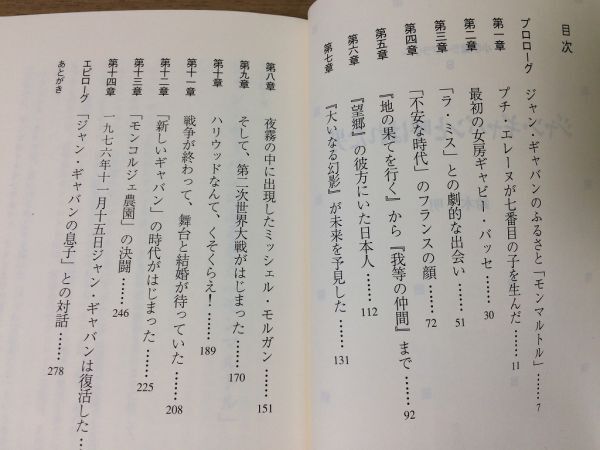 目次
プロローグ ジャン・ギャバンのふるさと「モンマルトル」……7
第一章 プチ・エレーヌが七番目の子を生んだ……11
第二章 最初の女房ギャビー・バッセ……30
第三章 「ラ・ミス」との劇的な出会い……51
第四章 「不安な時代」のフランスの顔……72
第五章 『地の果てを行く』から『我等の仲間』まで……92
第六章 『望郷』の彼方にいた日本人……112
第七章 『大いなる幻影』が未来を予見した……131
第八章 夜霧の中に出現したミッシェル・モルガン……151
第九章 そして、第二次世界大戦がはじまった……170
第十章 ハリウッドなんて、くそくらえ!……189
第十一章 戦争が終わって、舞台と結婚が待っていた……208
第十二章 「新しいギャバン」の時代がはじまった……225
第十三章 「モンコルジェ農園」の決闘……246
第十四章 一九七六年十一月十五日ジャン・ギャバンは復活した…
エピローグ 「ジャン・ギャバンの息子」との対話……278
あとがき